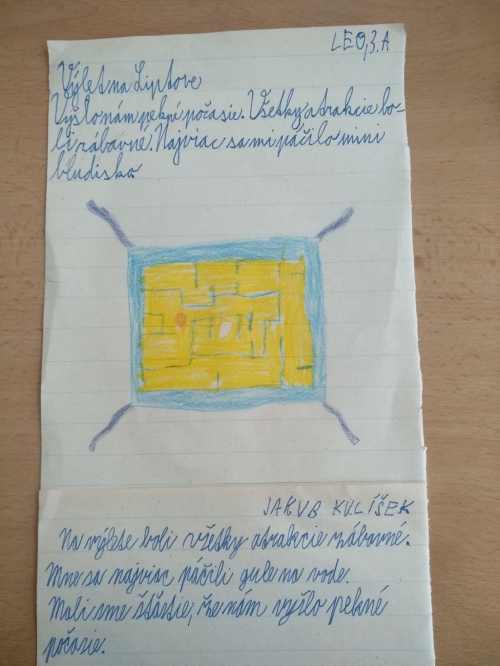 LEO, 3.A
Výlet na Liptove
Vyšlo nám pekné počasie. Všetky atrakcie bo-
li zábavné. Najviac sa mi páčilo mini
bludisko.
JAKUB KULÍŠEK
Na výlete boli všetky atrakcie zábavné.
Mne sa najviac páčili gule na vode.
Mali sme šťastie, že nám vyšlo pekné
počasie.